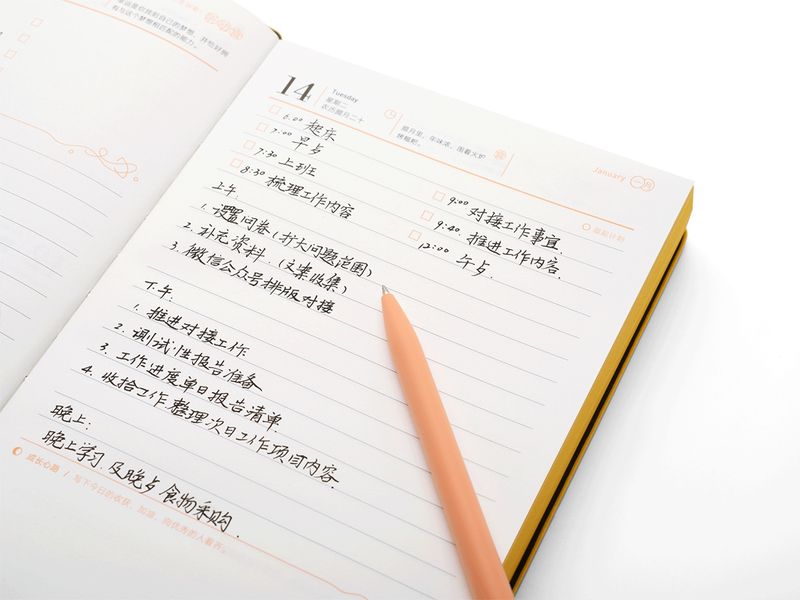 有与这个梦想相匹配的能力。
14
Tuesday
星期二
农历腊月二十
腊月里，年味浓，围着火炉
烤糍粑。
January 一月
6:00 起床
7:00 早点
7:30 上班
8:30 梳理工作内容
晨起计划
9:00 对接工作事宜.
9:40. 推进工作内容.
12:00 午点.
上午
1. 设置问卷(扩大问题范围)
2. 补充资料.(文案收集)
3. 微信公众号排版对接
下午:
1. 推进对接工作
2. 调试性报告准备
3. 工作进度单日报告清单.
4. 收拾工作整理次日工作项目内容.
晚上:
晚上学习.及晚点食物采购.
成长心路 / 写下今日的收获，加油，向优秀的人看齐。